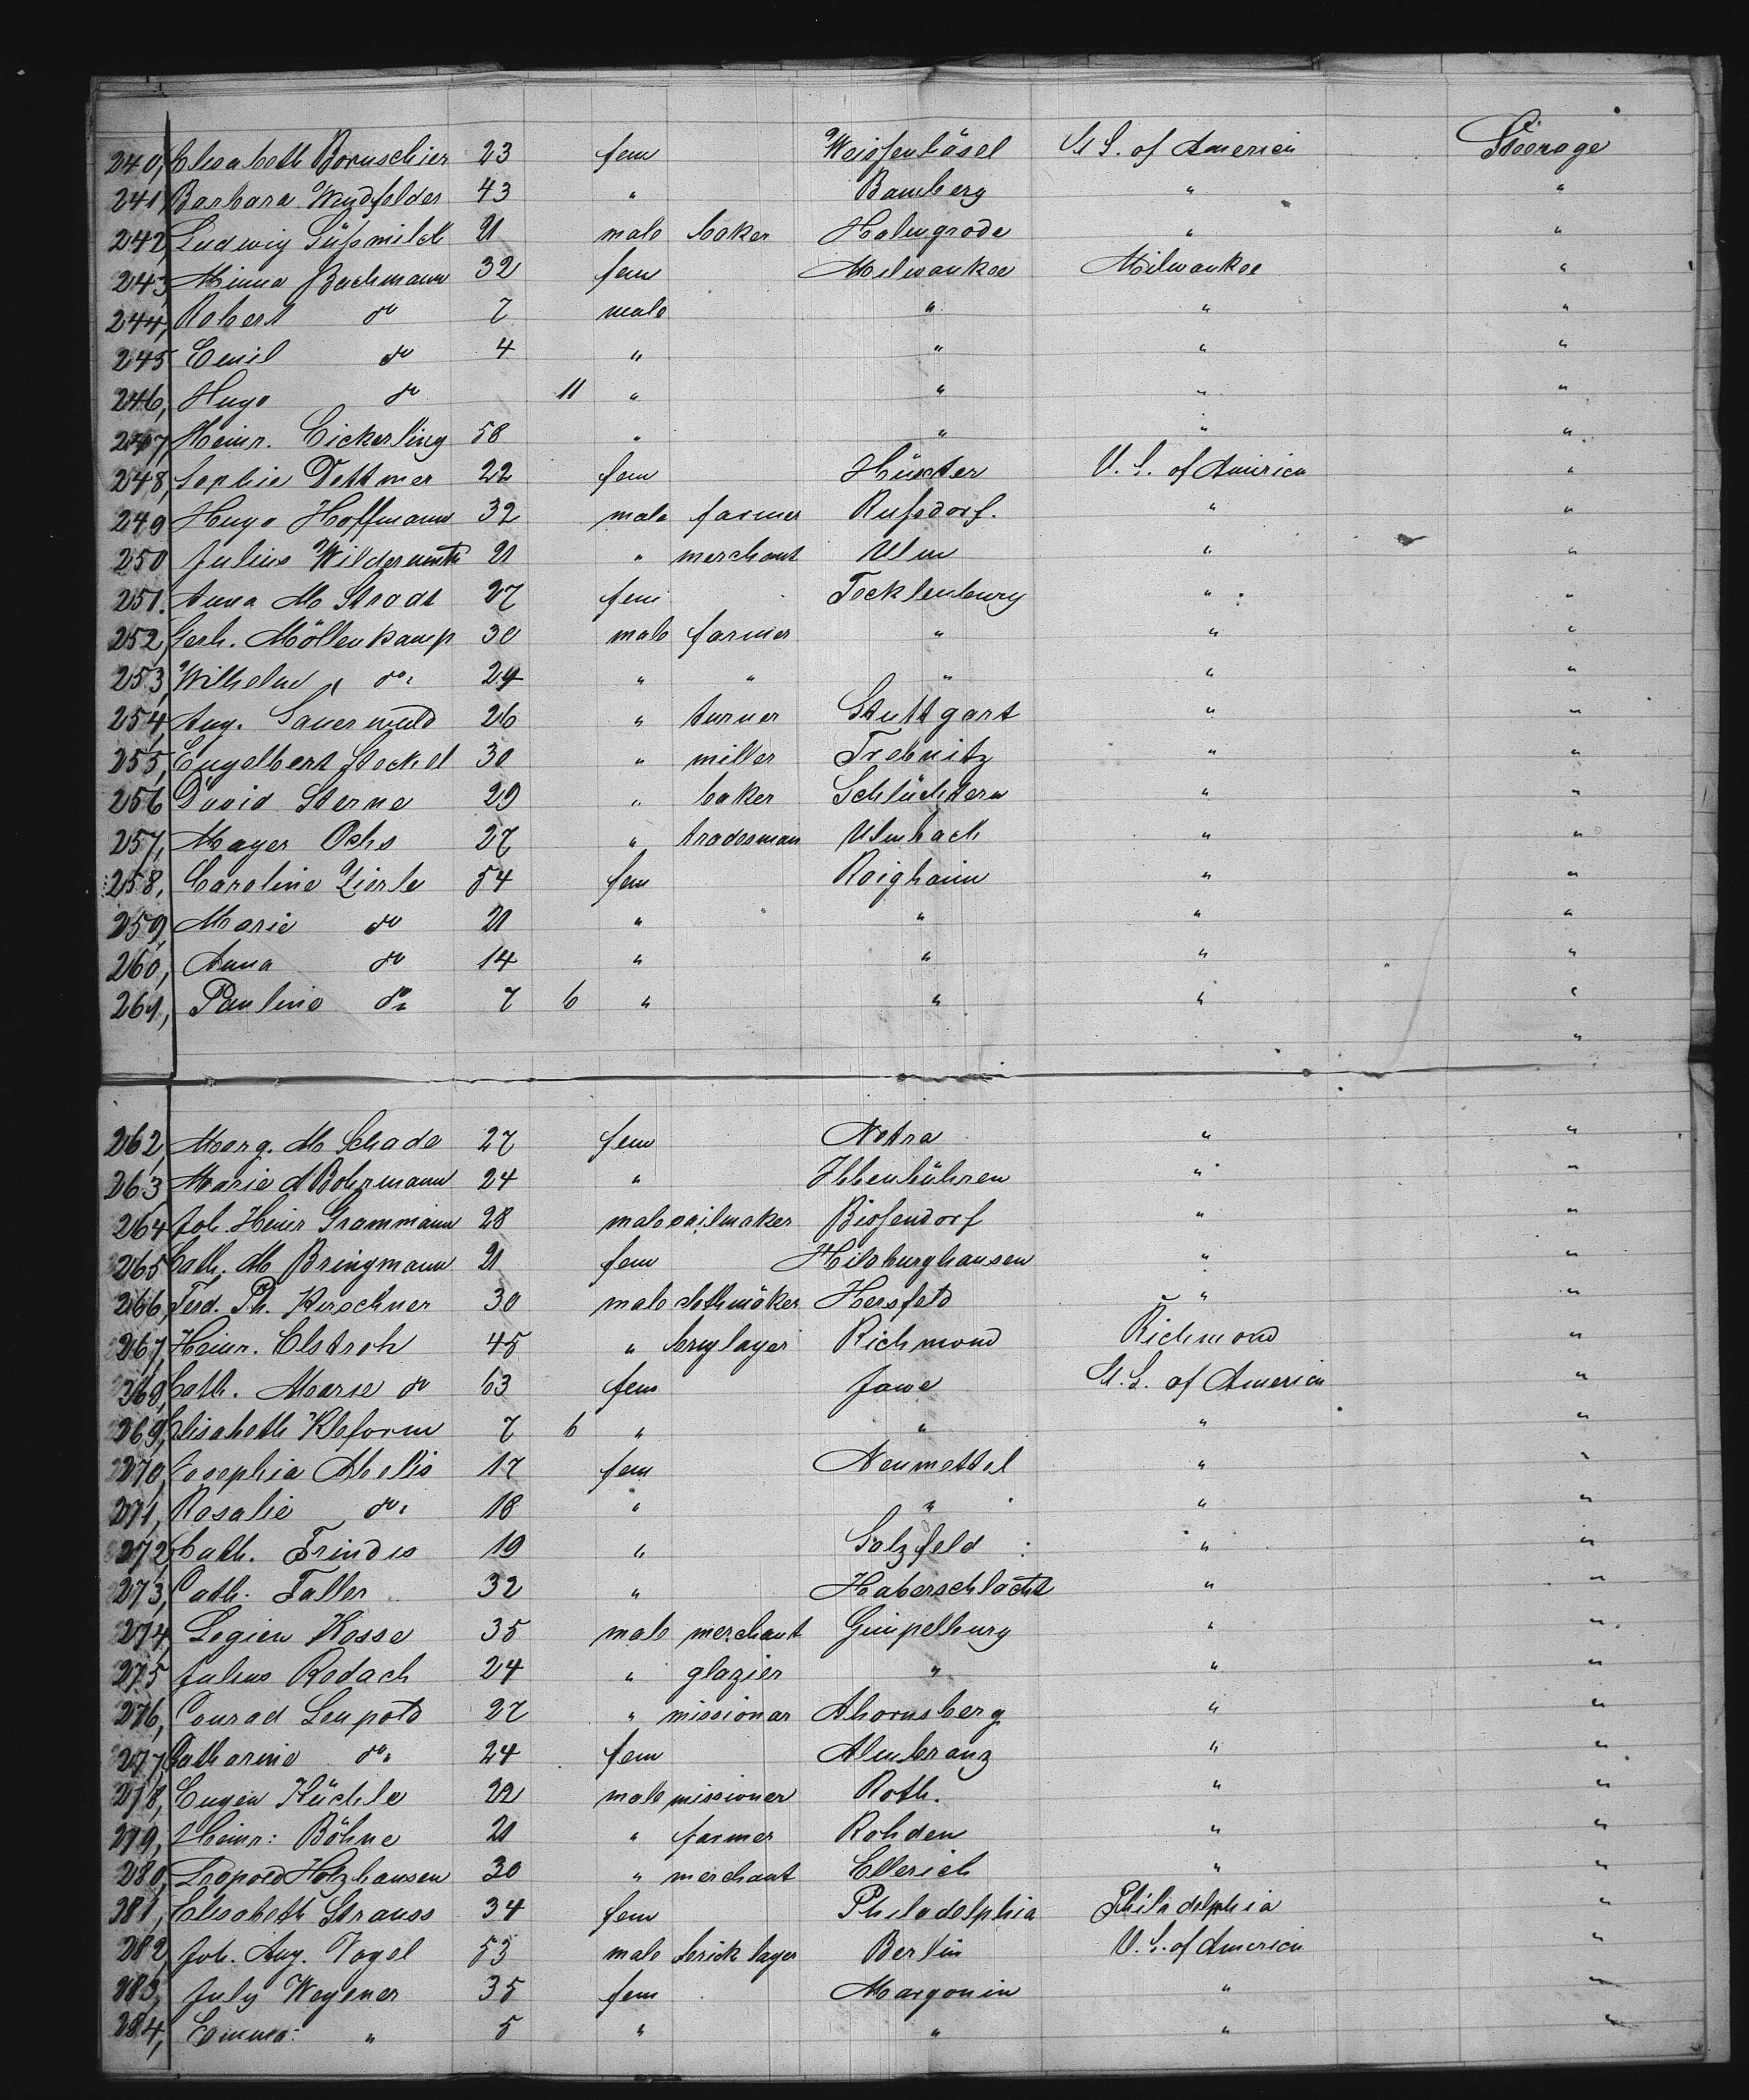 240, Elisabeth Boruschier 23 fem Weissenbäsel U S. of America Steerage
241, Barbara Weydfelder 43 " Bamberg " "
242, Ludwig Süssmilch 21 male baker Halngrode " "
243, Minna Bachmann 32 fem Milwaukee Milwaukee "
244, Robert do 7 male " " "
245 Emil do 4 " " " "
246, Hugo do 11 " " " "
247, Heinr. Eickerling 58 " " " "
248, Sophie Dettmer 22 fem Hüxter U. S. of America "
249 Hugo Hoffmann 32 male farmer Russdorf. " "
250 Julius Wildermuth 21 " merchant Ulm " "
251. Anna M Strodt 27 fem Tecklenburg " "
252, Gerh. Möllenkamp 30 male farmer " " "
253, Wilhelm do 24 " " " " "
254, Aug. Sauerwald 26 " turner Stuttgart " "
255, Engelbert Stockel 30 " miller Trebnitz " "
256 David Sterne 29 " baker Schlüchtern " "
257, Mayer Ochs 27 " tradesman Ulmbach " "
258, Caroline Zierle 54 fem Roigheim " "
259, Marie do 21 " " " "
260, Anna do 14 " " " "
261, Pauline do 7 6 " " " "
"
262, Marg. M Schade 27 fem Netra " "
263 Marie A Bohrmann 24 " Ibbenbühren " "
264 Joh. Heinr Grammann 28 male sailmaker Bissendorf " "
265 Cath. M Bringmann 21 fem Hilsburghausen " "
266, Ferd. Ph. Kirschner 30 male clothmaker Hersfeld " "
267, Heinr. Elstroh 45 " bryglayer Richmond Richmond "
268, Cath. Marie do 63 fem Jowe U. S. of America "
269, Elisabeth Kleform 7 6 " " " "
270, Josephia Abelis 17 fem Neumettel " "
271, Rosalie do 18 " " " "
272, Cath. Frindis 19 " Salzfeld " "
273, Cath. Faller 32 " Haberschlacht " "
274, Legien Kosse 35 male merchant Gimpelburg " "
275 Julius Rodach 24 " glazier " " "
276, Conrad Leupold 27 " missionar Ahornsberg " "
277, Catharine do 24 fem Almbranz " "
278, Eugen Küchle 22 male missioner Roth. " "
279, Heinr: Böhne 21 " farmer Rohden " "
280, Leopold Holzhausen 30 " merchant Ellerich " "
281, Elisabeth Strauss 34 fem Philadelphia Philadelphia "
282, Joh. Aug. Vogel 53 male brick layer Berlin U. S. of America "
283, July Wegener 35 fem Margonin " "
284, Emma " 5 " " " "